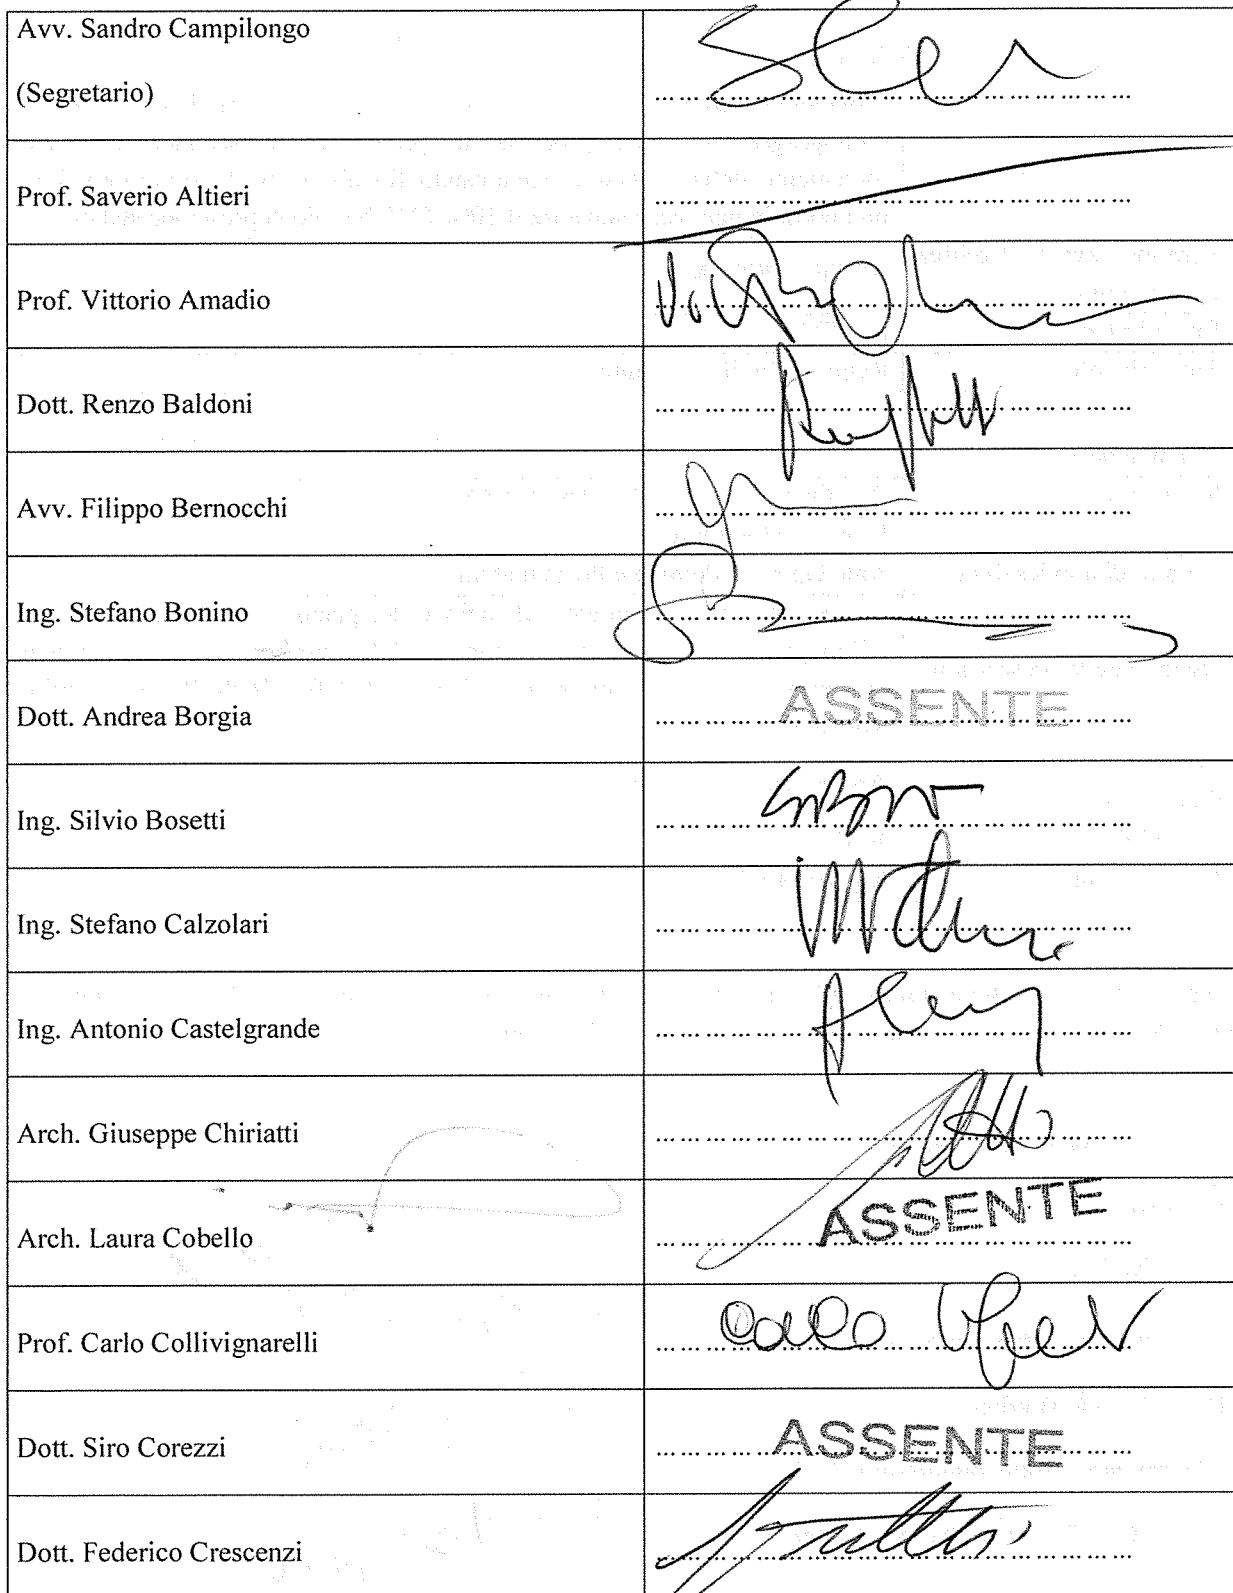 Avv. Sandro Campilongo
(Segretario)
Prof. Saverio Altieri
Prof. Vittorio Amadio
Dott. Renzo Baldoni
Avv. Filippo Bernocchi
Ing. Stefano Bonino
Dott. Andrea Borgia
ASSENTE
Ing. Silvio Bosetti
Ing. Stefano Calzolari
Ing. Antonio Castelgrande
Arch. Giuseppe Chiriatti
Arch. Laura Cobello
ASSENTE
Prof. Carlo Collivignarelli
Dott. Siro Corezzi
ASSENTE
Dott. Federico Crescenzi